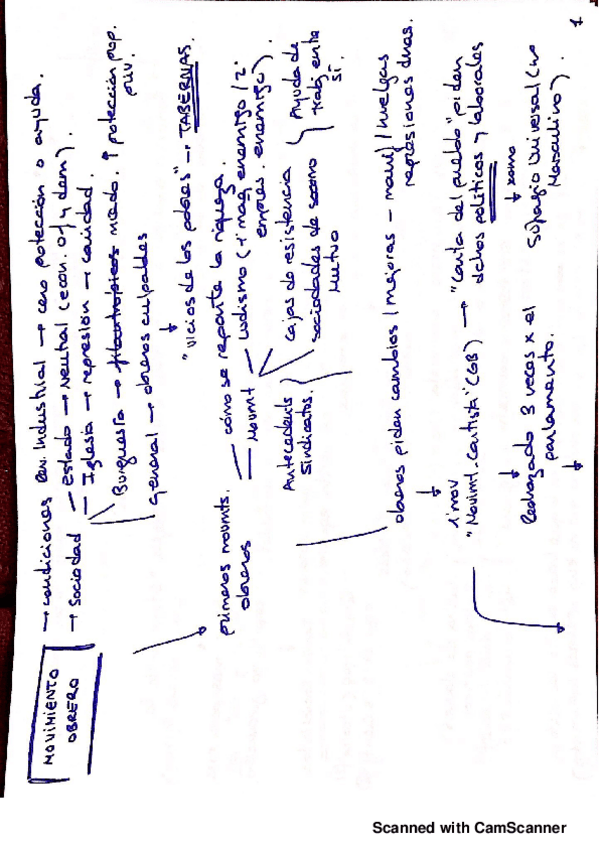 1
MOVIMIENTO OBRERO
→ condiciones Rev. Industrial → cero protección o ayuda.
→ sociedad — Estado → Neutral (econ. Of y dem).
— Iglesia → represión → caridad.
Burguesía → filantrópicos miedo. ↑ protección prop. priv.
general → obreros culpables
↓
"vicios de los pobres" → TABERNAS.
primeros movmts. obreros — cómo se reparte la riqueza.
— Movmt — Ludismo (1º maq enemigo / 2º empres. enemigo).
Antecedents Sindicatos.
cajas de resistencia
sociedades de socorro mutuo
Ayuda de trabj entre sí.
obreros piden cambios / mejoras – manif / huelgas
represiones duras.
↓
1º mov
"Movimt. Cartista" (GB) → "Carta del pueblo" piden
dchos políticos y laborales
↓ como
Sufragio Universal (no Masculino).
↓
Rechazado 3 veces x el
parlamento.
↓
Scanned with CamScanner